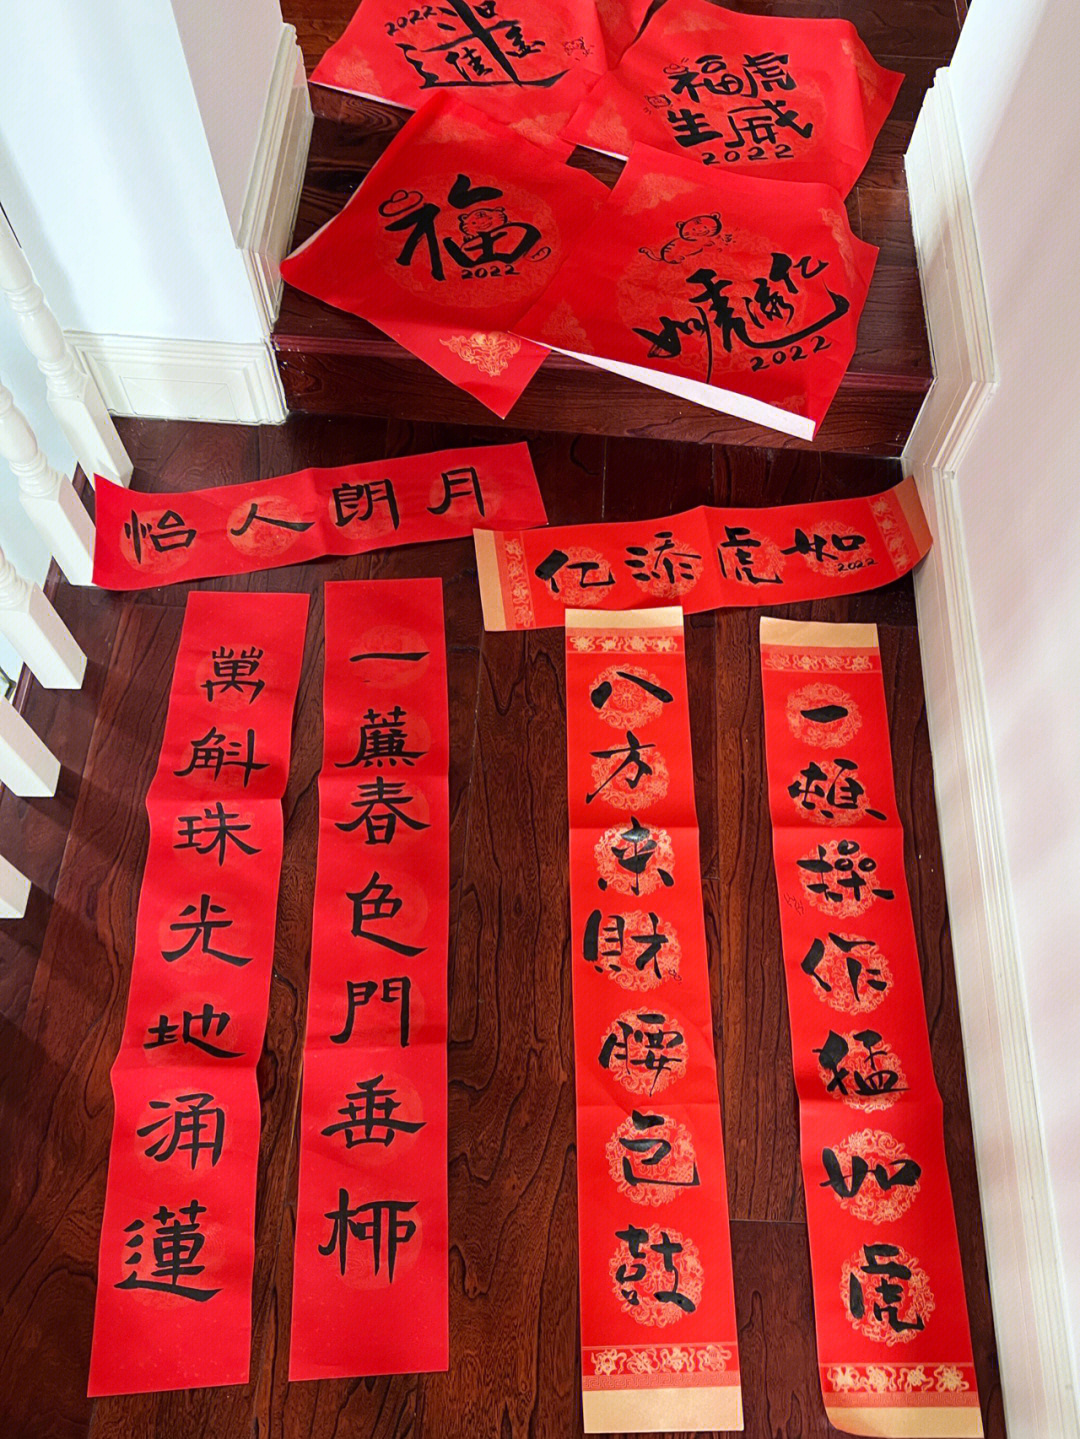 2022
日進斗金
福虎生威
2022
福
2022
如虎添亿
2022
月朗人怡
如虎添亿
2022
一簾春色門垂柳
萬斛珠光地涌蓮
一頓操作猛如虎
八方来財腰包鼓